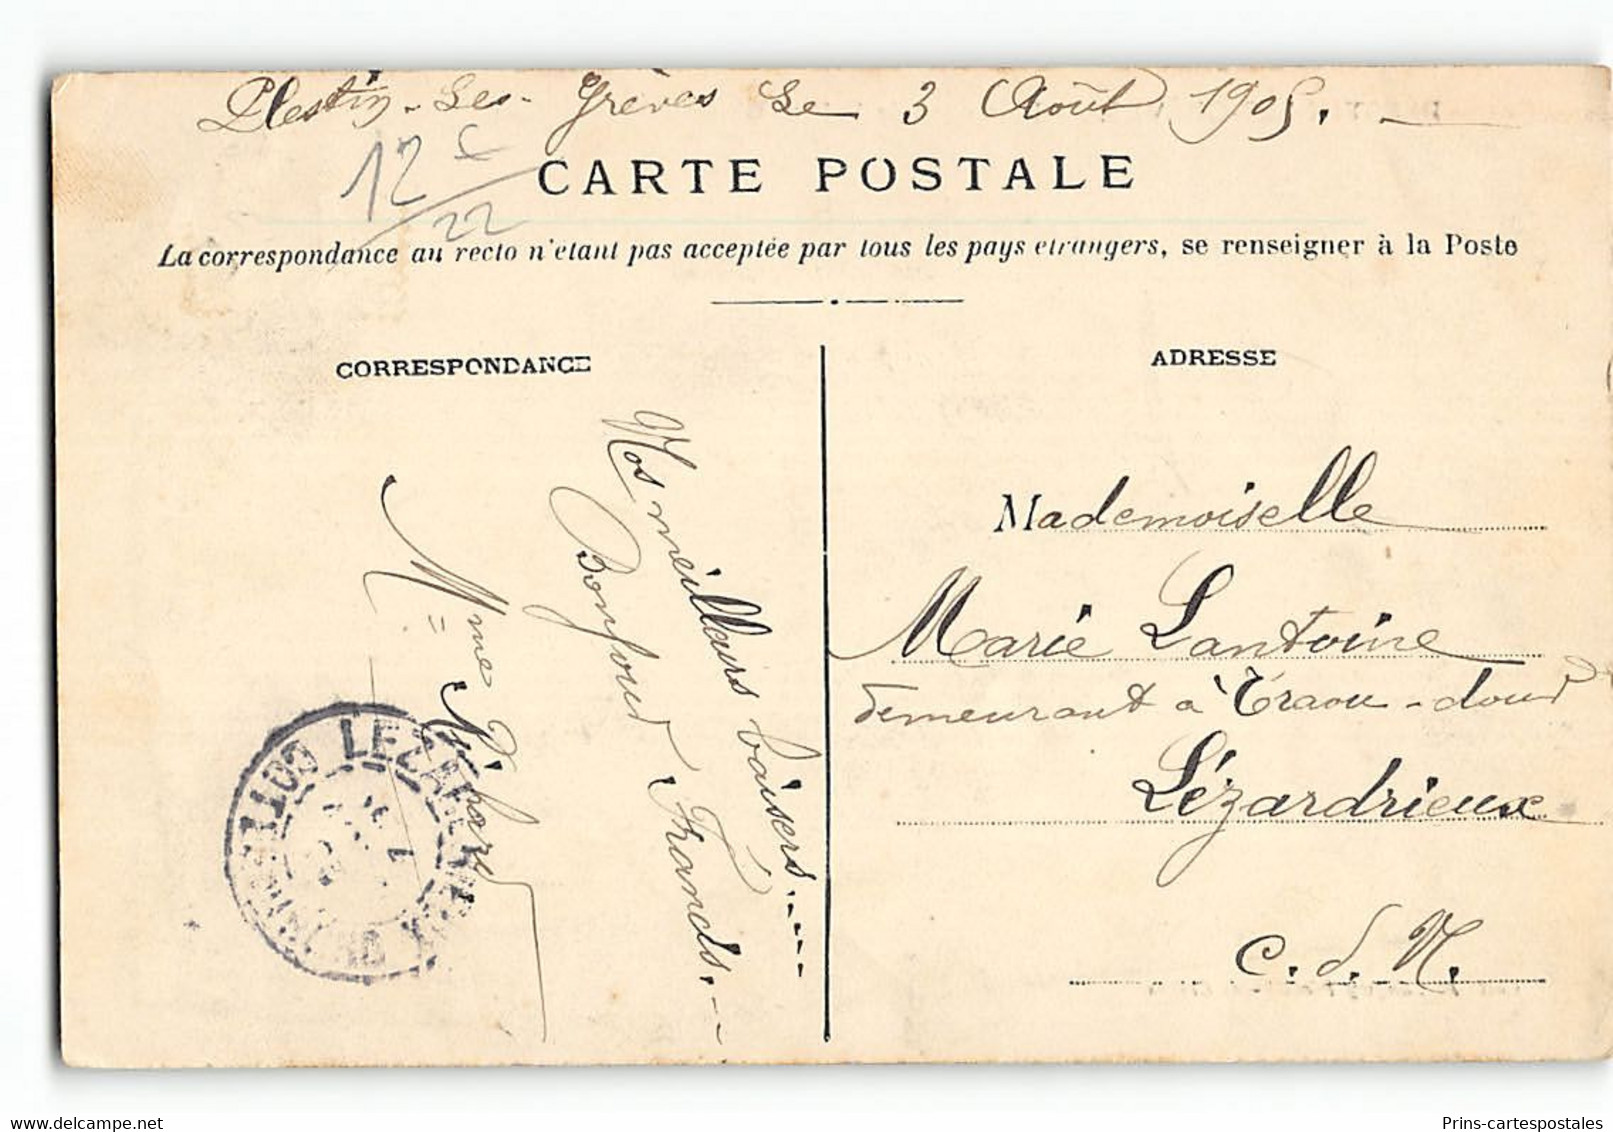 Plestin-Les-Grèves Le 3 Août 1905.
12 €
22
CARTE POSTALE
La correspondance au recto n'étant pas acceptée par tous les pays étrangers, se renseigner à la Poste
CORRESPONDANCE
Nos meilleurs baisers....
Bonjour Francis.
Mme
LEZARDRIEUX
COTES DU NORD
ADRESSE
Mademoiselle
Marie Lantoine
demeurant à Traou-dour
Lézardrieux
C. d. N.
Prins-cartespostales